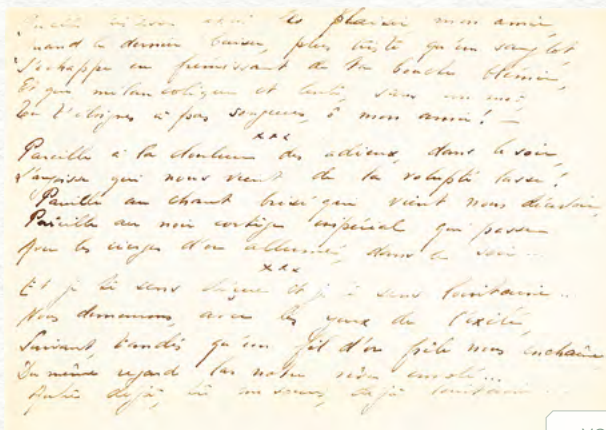 Quelle tristesse après les plaisirs, mon amie,
Quand le dernier baiser, plus triste qu'un sanglot
S'échappe en frémissant de ta bouche blêmie,
Et que mélancolique et lente, sans un mot,
Tu t'éloignes à pas songeurs, ô mon amie! –
xxx
Pareille à la douleur des adieux, dans le soir,
L'angoisse qui nous vient de la volupté lasse!
Pareille au chant brisé que vient nous décevoir,
Pareille au noir cortège impérial qui passe
les cierges d'or allumés, dans le soir ...
xxx
Et je te sens et je te sens lointaine ..
Nous demeurons, avec les yeux de l'exilé,
Suivant, tandis qu'un fil d'or frêle nous enchaîne
Du même regard las notre rêve envolé...
déjà, tu me souris, déjà lointaine ...